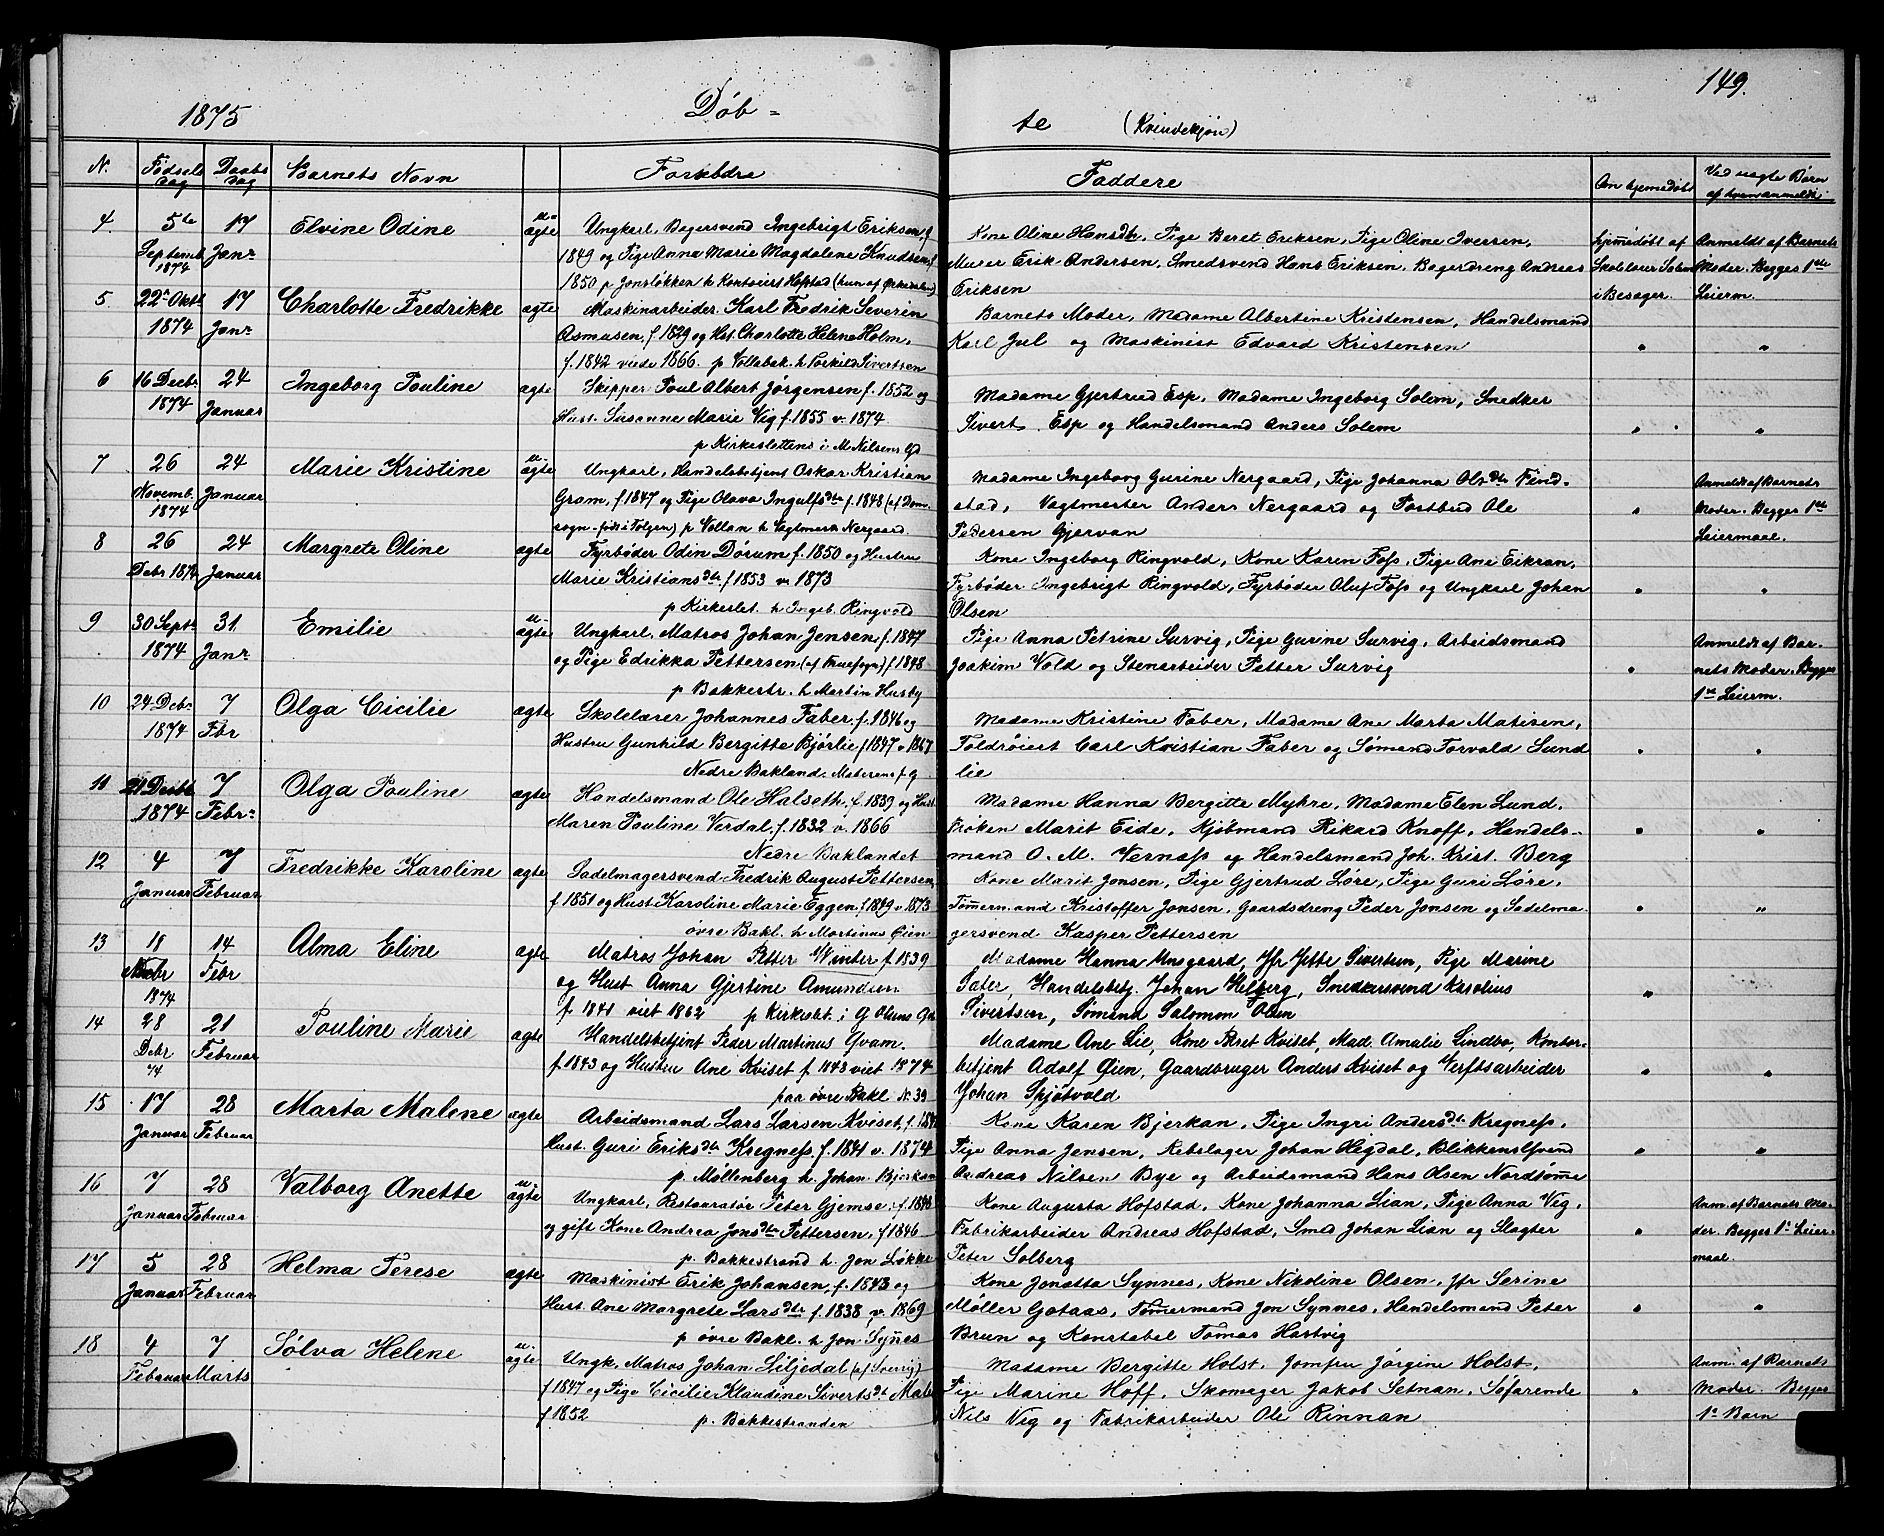 149.
1875 Döb = te (Kvindekjøn)
N. Fødsels dag Daabs dag Barnets Navn Forældre Faddere Om hjemedøbt Ved uægte Børn af hvem anmeldt
4 5te Septemb. 1874 17 Janr Elvine Odine u= ægte Ungkarl, Bagersvend Ingebrigt Eriksen, f.
1849 og Pige Anna Marie Magdalene Knudsen, f.
1850 p Jonsløkken h Kontorist Hofstad (hun afØrkedalen)
Kone Oline Hansdtr, Pige Beret Eriksen, Pige Oline Iversen,
Murer Erik Andersen, Smedsvend Hans Eriksen, Bagerdreng Andreas
Eriksen
hjemedøbt af Skolelærer Solem i Besager.
Anmeldt af Barnets Moder. Begges 1ste Leierm.
5 22de Oktb 1874 17 Janr Charlotte Fredrikke ægte Maskinarbeider Karl Fredrik Severin
Asmusen, f. 1829 og Hst. Charlotte Helene Holm,
f. 1842 viede 1866. p Vollabak. h Torkild Sivertsen
Barnets Moder, Madame Albertine Kristensen, Handelsmand
Karl Jul og Maskinist Edvard Kristensen
" "
6 16 Decbr 1874 24 Januar Ingeborg Pouline ægte Skipper Poul Albert Jørgensen f. 1852 og
Hust. Susanne Marie Vig f. 1855 v. 1874.
p Kirkesletten i M. Nilsens Gd
Madame Gjertrud Esp, Madame Ingeborg Solem, Snedker
Sivert Esp og Handelsmand Anders Solem
" "
7 26 Novemb. 1874 24 Januar Marie Kristine u- ægte Ungkarl, Handelsbetjent Oskar Kristian
Gram, f. 1847 og Pige Olava Ingulfsdtr f. 1848 (af Dom-
sogn - født i Tolgen) p Vollan h Vagtmester Nergaard
Madame Ingeborg Gurine Nergaard, Pige Johanna Olsdtr Find-
stad, Vagtmester Anders Nergaard og Postbud Ole
Pedersen Gjervan
" Anmeldt af Barnets Moder. Begges 1ste Leiermaal.
8 26 Debr 1874 24 Januar Margrete Oline ægte Fyrbøder Odin Dørum f. 1850 og Hustru
Marie Kristiansdtr f. 1853 v. 1873
p Kirkeslet. h Ingeb. Ringvold
Kone Ingeborg Ringvold, Kone Karen Foss, Pige Ane Eikran,
Fyrbøder Ingebrigt Ringvold, Fyrbøder Oluf Foss og Ungkarl Johan
Olsen
" "
9 30 Septr 1874 31 Janr Emilie u- ægte Ungkarl, Matros Johan Jensen, f. 1847
og Pige Edrikka Pettersen (af Fruesogn) f. 1848
p Bakkestr. h Martin Husby
Pige Anna Petrine Survig, Pige Gurine Survig, Arbeidsmand
Joakim Vold og Stenarbeider Petter Survig
" Anmeldt af Barnets Moder. Begges 1ste Leierm.
10 24 Debr 1874 7 Fbr Olga Cicilie ægte Skolelærer Johannes Faber, f. 1846 og
Hustru Gunhild Bergitte Bjørlie f 1847 v. 1867
Nedre Bakland. Matisens g.
Madame Kristine Faber, Madame Ane Marta Matisen,
Toldrøiert Carl Kristian Faber og Sømand Torvald Sund
lie
" "
11 21 Decbr 1874 7 Febr Olga Pouline ægte Handelsmand Ole Halseth, f. 1839 og Hust.
Maren Pouline Verdal, f. 1832 v. 1866
Nedre Baklandet
Madame Hanna Bergitte Myhre, Madame Elen Lund,
Frøken Marit Eide, Kjøbmand Rikard Knoff, Handels-
mand O. M. Verness og Handelsmand Joh. Krist. Berg
" "
12 4 Januar 7 Februar Fredrikke Karoline ægte Sadelmagersvend Fredrik August Pettersen,
f 1851 og Hust Karoline Marie Eggen f. 1849 v. 1873
øvre Bakl. h Martinus Øien
Kone Marit Jonsen, Pige Gjertrud Løre, Pige Guri Løre,
Tømermand Kristoffer Jonsen, Gaardsdreng Peder Jonsen og Sadelma-
gersvend Kasper Pettersen
" "
13 18 1874 14 Febr Alma Eline ægte Matros Johan Petter Winter f 1839
og Hust Anna Gjertine Amundsen
f 1841 viet 1862 p Kirkeslet. i G Olsens Gd
Madame Hanna Unsgaard, Jfr Jette Sivertsen, Pige Marine
Sater, Handelsbetj. Johan Helberg, Snedkersvend Karolius
Sivertsen, Sømand Salomon Olsen
"
14 28 Debr 74 21 Februar Pouline Marie ægte Handelsbetjent Peder Martinus Qvam.
f 1843 og Hustru Ane Kviset f 1843 viet 1874
paa øvre Bakl N. 39
Madame Ane Lie, Kone Beret Kviset, Mad. Amalie Lindbo, Kontor-
betjent Adolf Øien, Gaardbruger Anders Kviset og Verftsarbeider
Johan Spjøtvold
" "
15 17 Januar 28 Februar Marta Malene ægte Arbeidsmand Lars Larsen Kviset, f.
Hust. Guri Eriksdtr Kregness, f. 1841 v. 1874
p. Møllenberg h. Johan Bjerkan
Kone Karen Bjerkan, Pige Ingri Andersdtr Kregness,
Pige Anna Jensen, Rebslager Johan Hegdal, Blikkenslsvend
Andreas Nilsen Bye og Arbeidsmand Hans Olsen Nordtømme
" "
16 7 Januar 28 Februar Valborg Anette u- ægte Ungkarl, Restauratør Peter Gjemse, f. 1848
og gift Kone Andrea Jonsdtr Pettersen, f. 1846
p. Bakkestrand h. Jon Løkke
Kone Augusta Hofstad, Kone Johanna Lian, Pige Anna Vig,
Fabrikarbeider Andreas Hofstad, Smed Johan Lian og Slagter
Peter Solberg
" Anm. af Barnets Moder. Begges 1e Leiermaal.
17 5 Januar 28 Februar Helma Terese ægte Maskinist Erik Johansen, f. 1843 og
Hust. Ane Margrete Larsdtr f. 1838 v. 1869
p. øvre Bakl. h Jon Synes
Kone Jonetta Synnes, Kone Nikoline Olsen, Jfr Serine
Møller Gotaas, Tømermand Jon Synnes, Handelsmand Peter
Brun og Konstabel Tomas Hartvig
" "
18 4 Februar 7 Marts Sølva Helene u- ægte Ungk. Matros Johan Liljedal (af Sverrig)
f 1847 og Pige Cicilie Klaudine Sivertsdt
f 1852 p. Bakkestranden
Madame Bergitte Holst, Jomfru Jørgine Holst,
Pige Marine Hoff, Skomager Jakob Setnan, Søfarende
Nils Vig og Fabrikarbeider Ole Rinnan
" Anm. af Barnets Moder. Begges 1e Barn